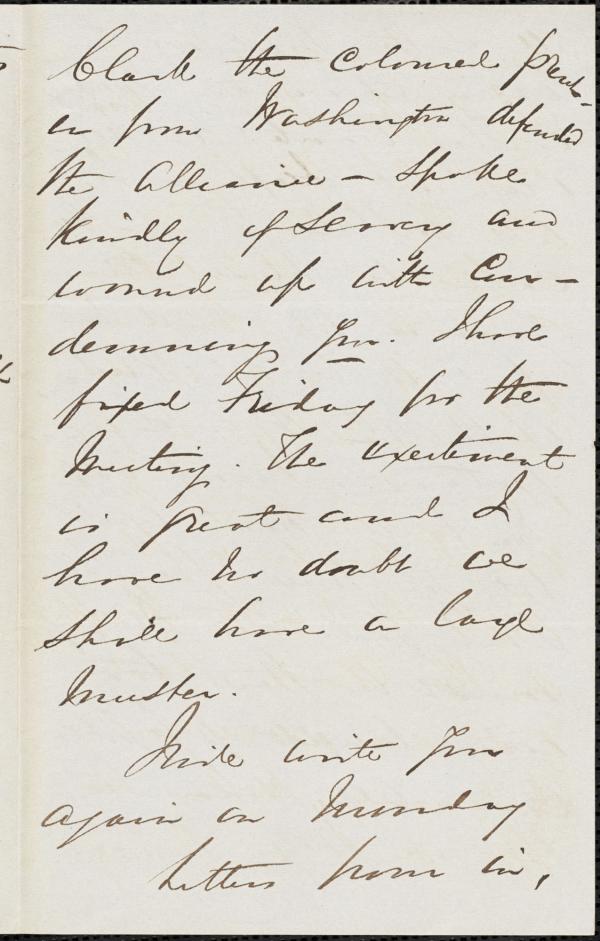 Clark the Coloured preach-
er from Washington defended
the Alliance - Spoke
kindly of Slavery and
wound up with Con-
demning you. I have
fixed Friday for the
Meeting. The excitement
is great and I
have no doubt we
shall have a large
muster.
I will write you
again on Monday
Letters from